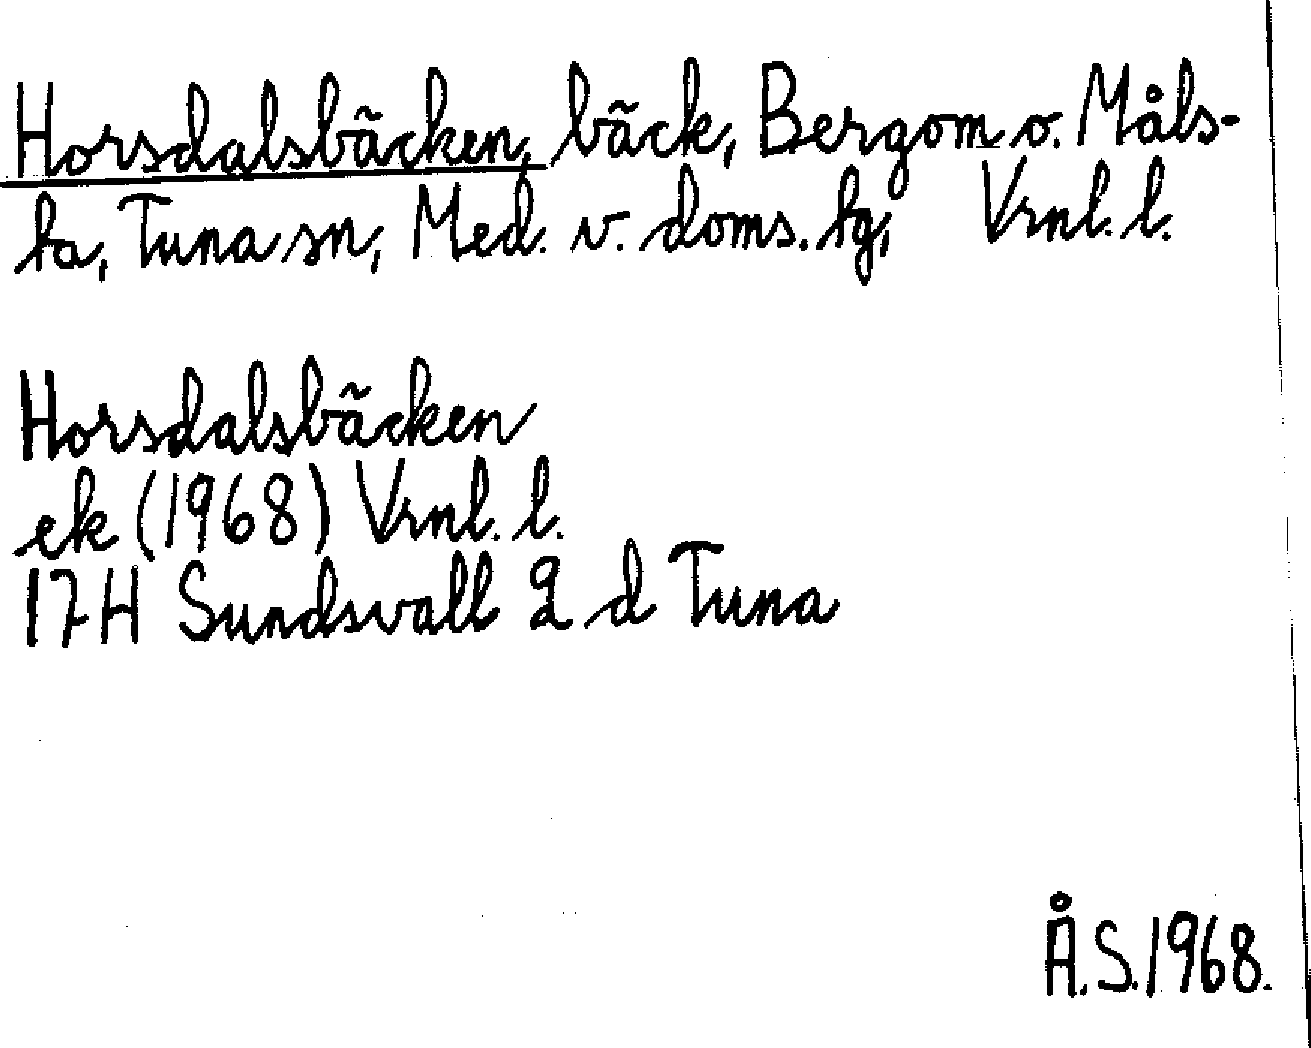 Horsdalsbäcken, bäck, Bergom o. Måls-
ta, Tuna sn, Med. v. doms. tg, Vrnl. l.
Horsdalsbäcken
ek (1968) Vrnl. l.
17H Sundsvall 2 d Tuna
Å.S. 1968.